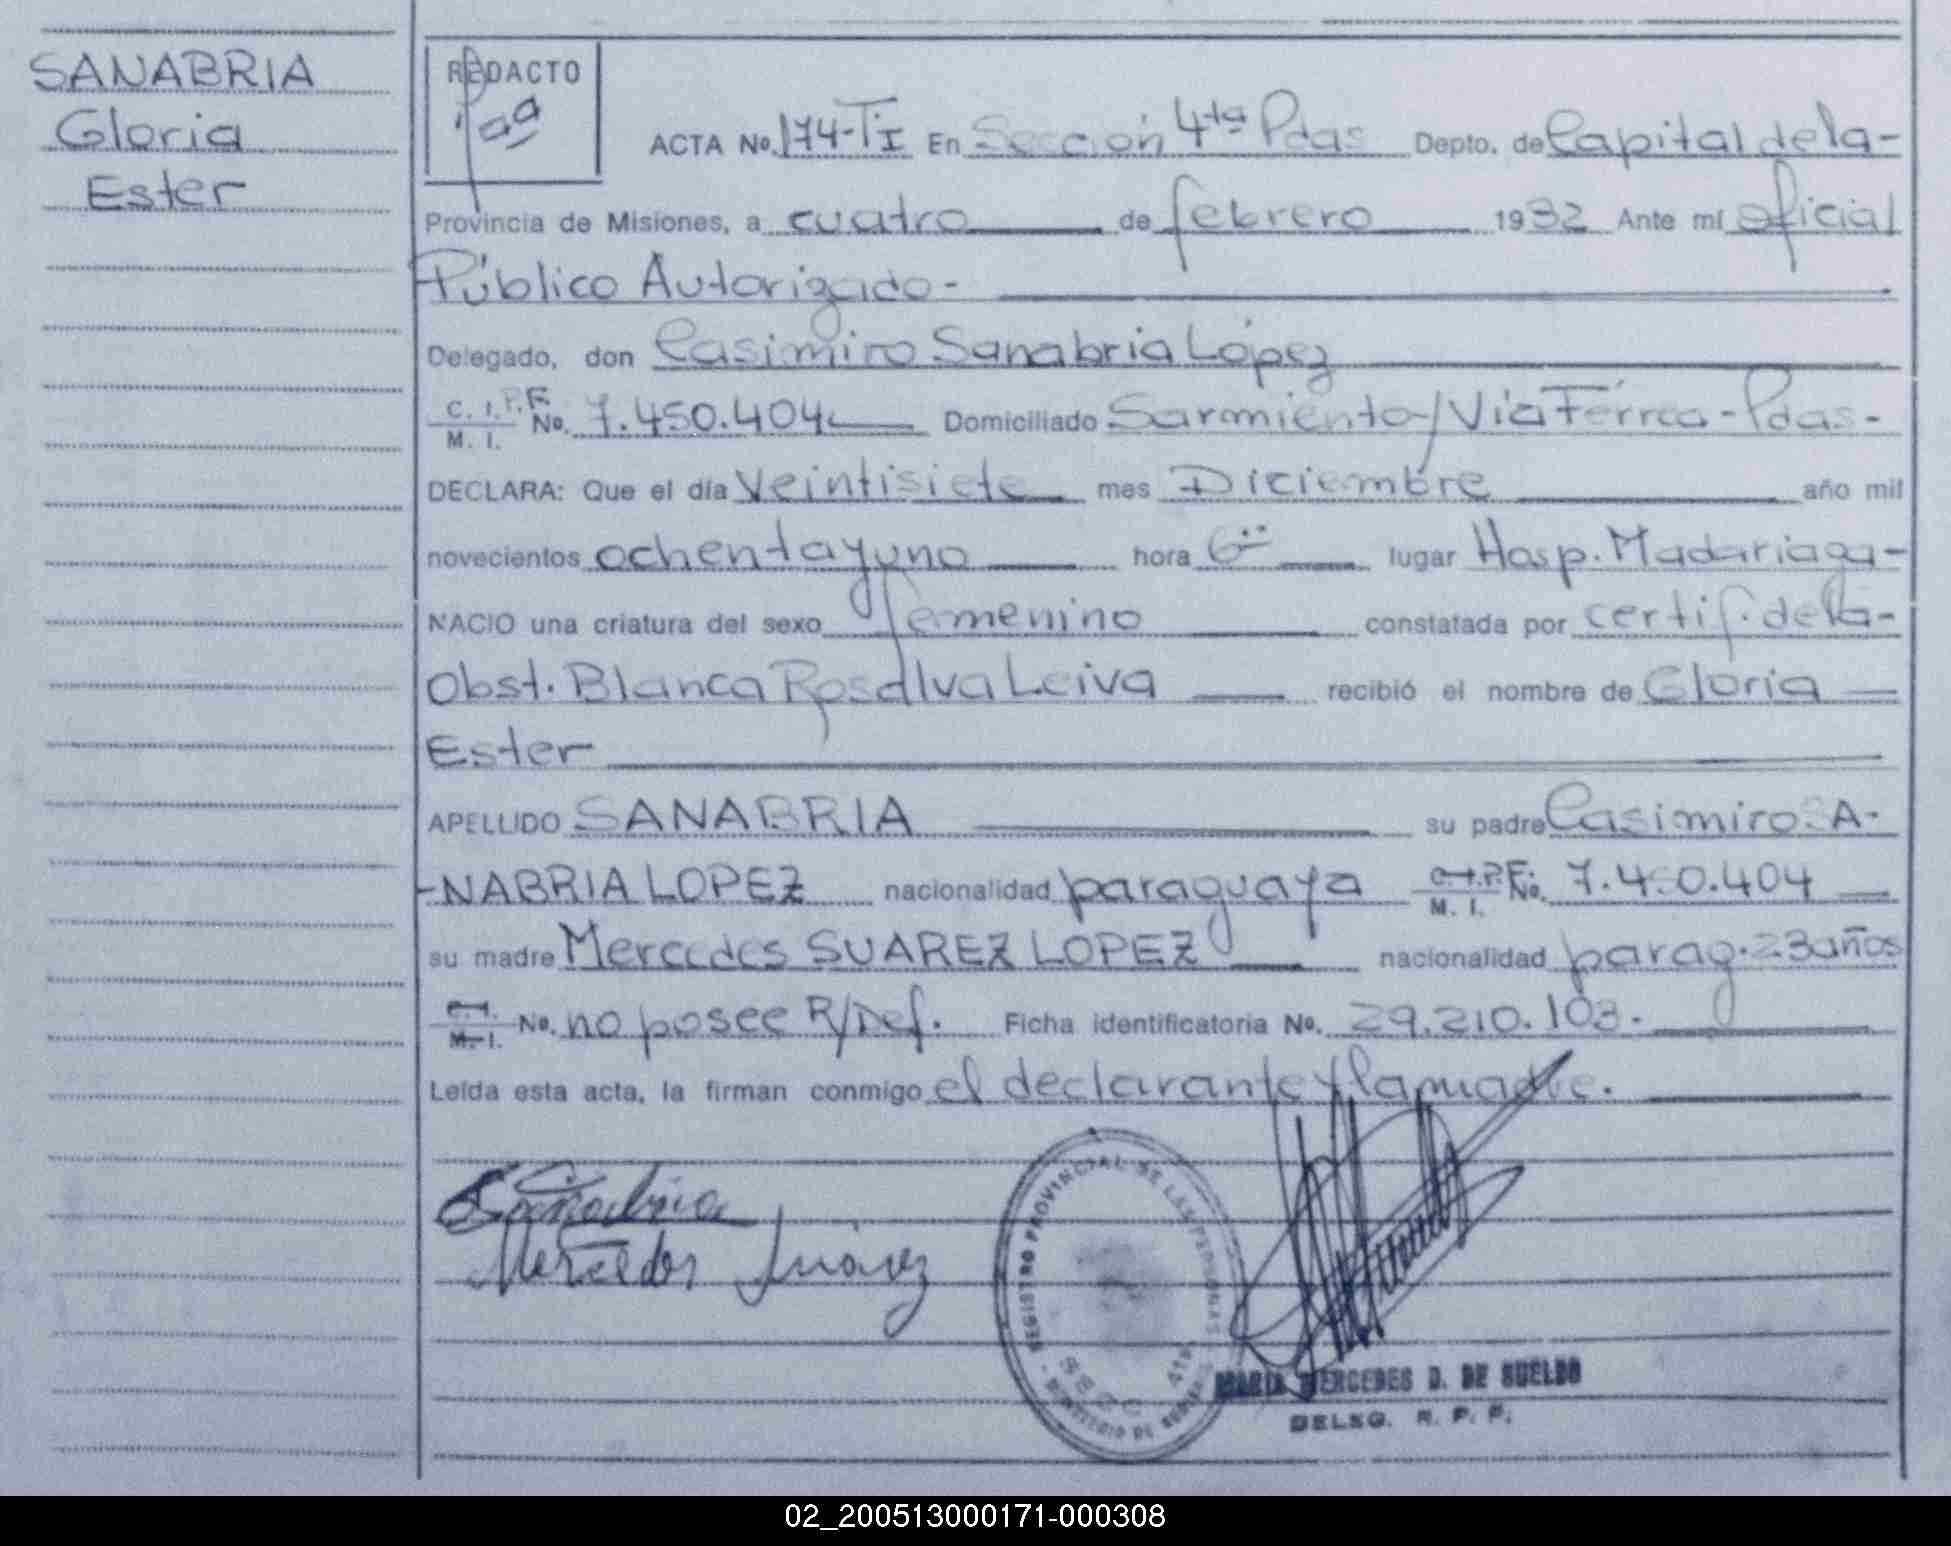 SANABRIA
Gloria
Ester
REDACTO
ACTA No. 174-TI En Sección 4ta Pdas Depto. de Capital de la-
Provincia de Misiones, a cuatro de febrero 1982 Ante mí oficial
Público Autorizado-
Delegado, don Casimiro Sanabria López
C. I. P.F. M. I. No. 7.450.404 Domiciliado Sarmiento y Vía Férrea - Pdas-
DECLARA: Que el día Veintisiete mes Diciembre año mil
novecientos ochenta y uno hora 6 lugar Hosp. Madariaga-
NACIO una criatura del sexo femenino constatada por certif. de la-
Obst. Blanca Rosa Iva Leiva recibió el nombre de Gloria
Ester
APELLIDO SANABRIA su padre Casimiro SA-
-NABRIA LOPEZ nacionalidad paraguaya C. I. P.F. M. I. No. 7.450.404
su madre Mercedes SUAREZ LOPEZ nacionalidad parag. 23 años
C. I. M. I. No. no posee R/Def. Ficha identificatoria No. 29.210.103.-
Leída esta acta, la firman conmigo el declarante y la madre.
Sanabria
Mercedes Suárez
REGISTRO PROVINCIAL DE LAS PERSONAS
SECC 4ta
MINISTERIO DE GOBIERNO
MARIA MERCEDES D. DE SUELDO
DELEG. R. P. P.
02_200513000171-000308